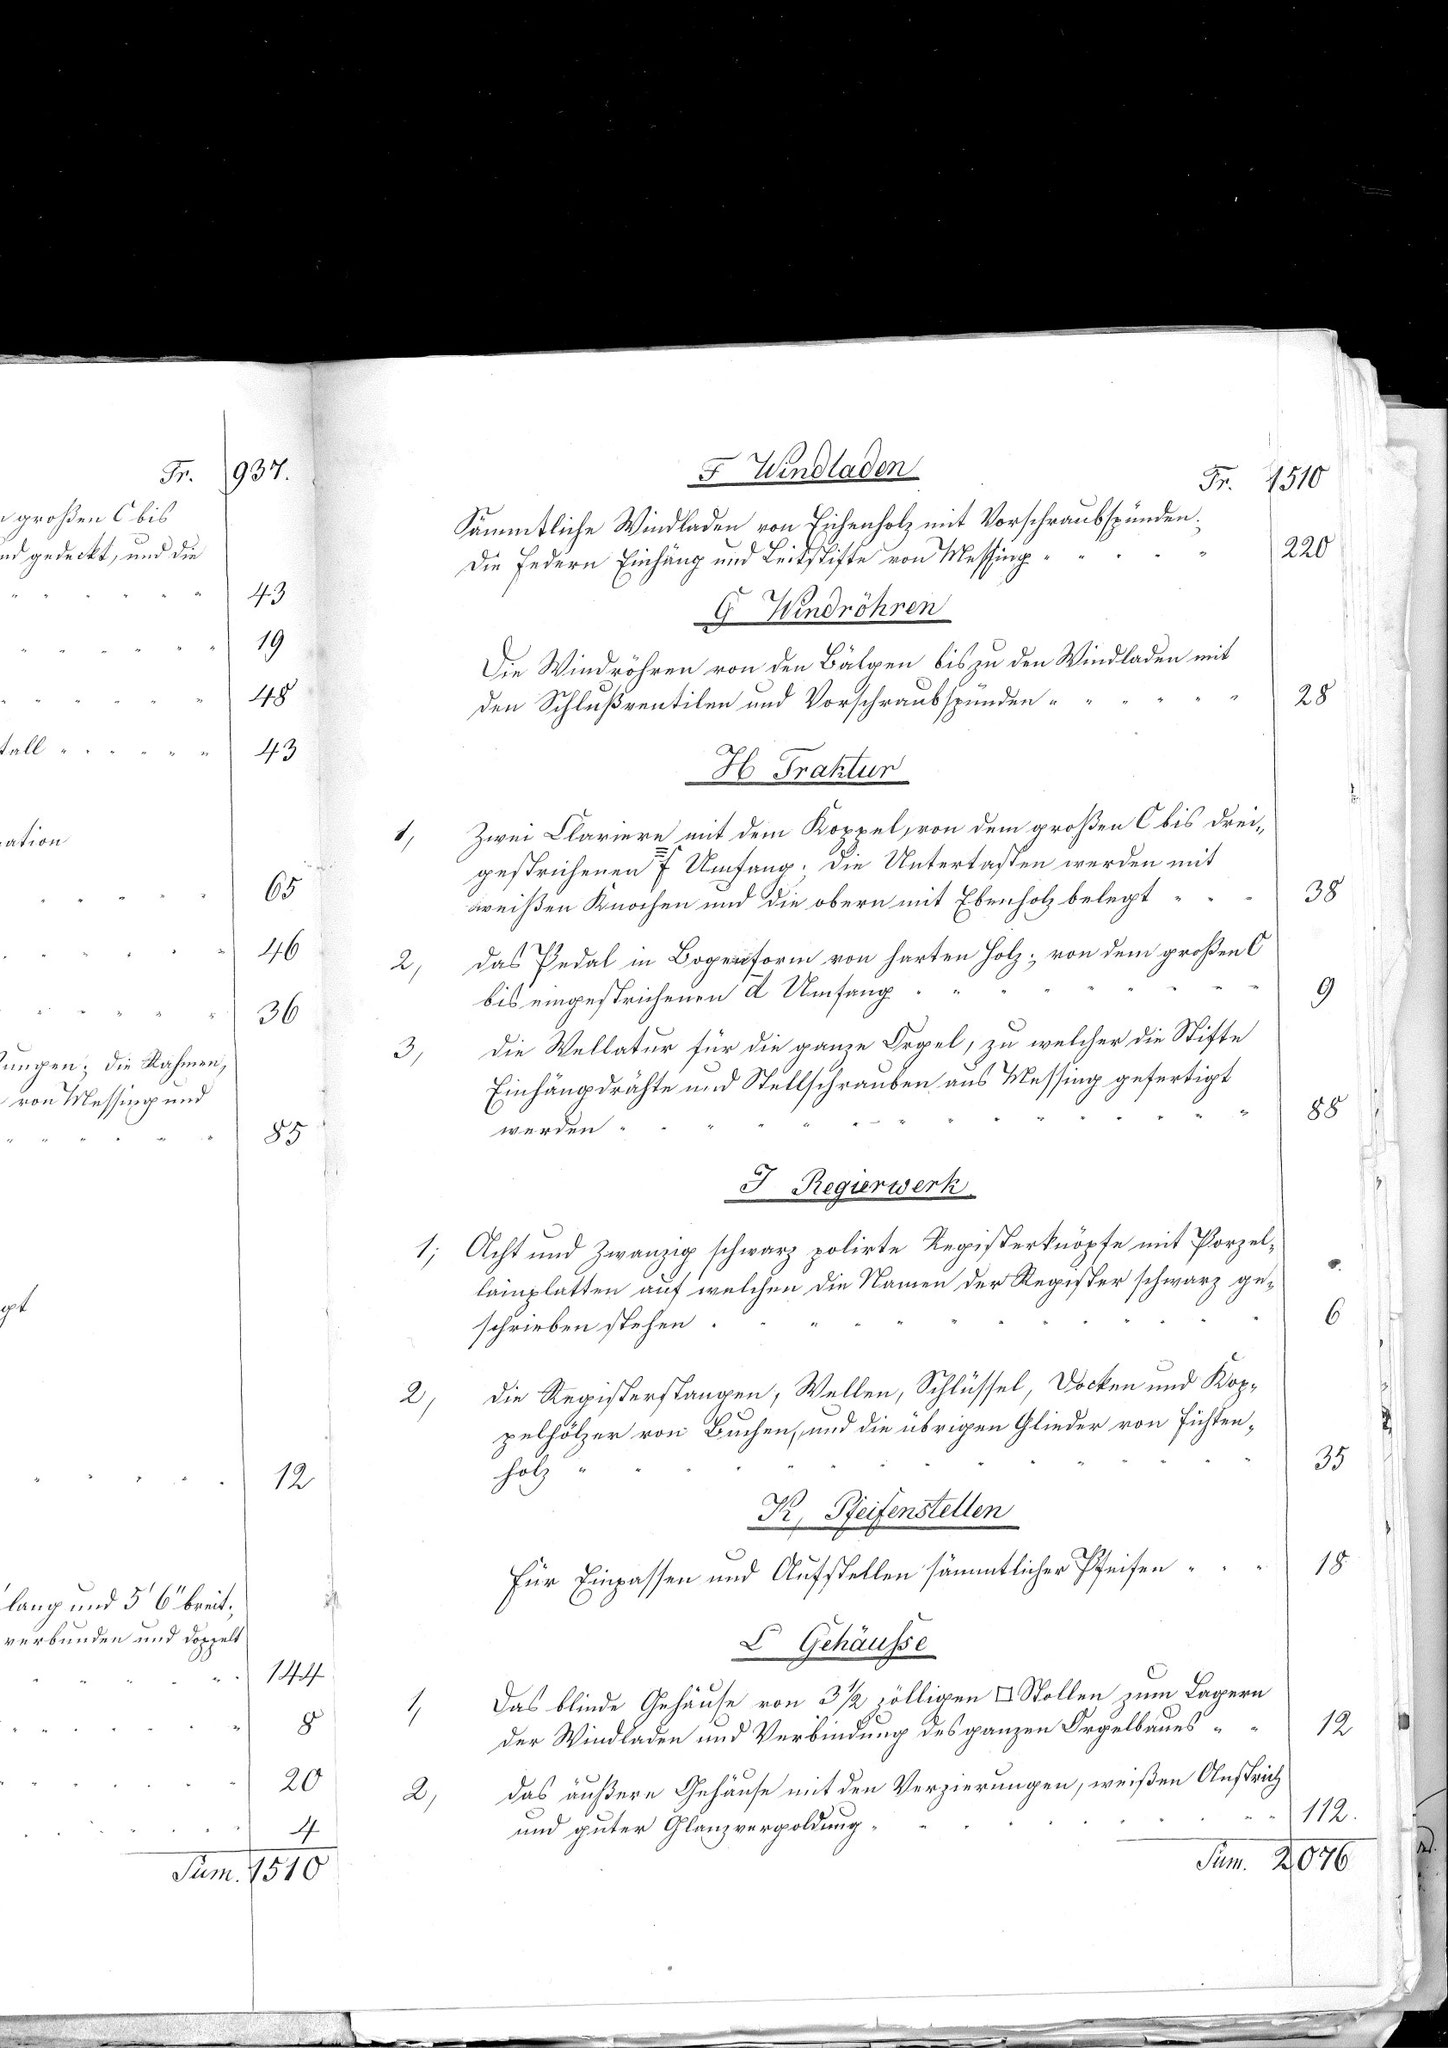 Fr. 937.
großen C bis
gedeckt, und die
43
19
48
tall 43
ation
65
46
36
ungen; die Rahmen,
von Messing und
85
gt
12
lang und 5' 6" breit;
verbunden und doppelt
144
8
20
4
Sum. 1510
F Windladen
Fr. 1510
Sämmtliche Windladen von Eichenholz mit Vorschraubspünden;
die Federn Einhäng und Leitstifte von Messing 220
G Windröhren
Die Windröhren von den Bälgen bis zu den Windladen mit
den Schlußventilen und Vorschraubspünden 28
H Traktur
1, Zwei Claviere mit dem Koppel, von dem großen C bis drei-
gestrichenen f Umfang; die Untertasten werden mit
weißen Knochen und die obern mit Ebenholz belegt 38
2, das Pedal in Bogenform von harten Holz; von dem großen C
bis eingestrichenen d Umfang 9
3, die Wellatur für die ganze Orgel, zu welcher die Stifte
Einhängdrähte und Stellschrauben aus Messing gefertigt
werden 88
J Regierwerk
1; Acht und Zwanzig schwarz polirte Registerknöpfe mit Porzel-
lainplatten auf welchen die Namen der Register schwarz ge-
schrieben stehen 6
2, die Registerstangen, Wellen, Schlüssel, Docken und Kop-
pelhölzer von Buchen, und die übrigen Glieder von Fichten-
holz 35
K, Pfeifenstellen
Für Einpassen und Aufstellen sämmtlicher Pfeifen 18
L Gehäusse
1, Das blinde Gehäuse von 3 1/2 zölligen □ Stollen zum Lagern
der Windladen und Verbindung des ganzen Orgelbaues 12
2, das äußere Gehäuse mit den Verzierungen, weißen Anstrich
und guter Glanzvergoldung 112.
Sum. 2076